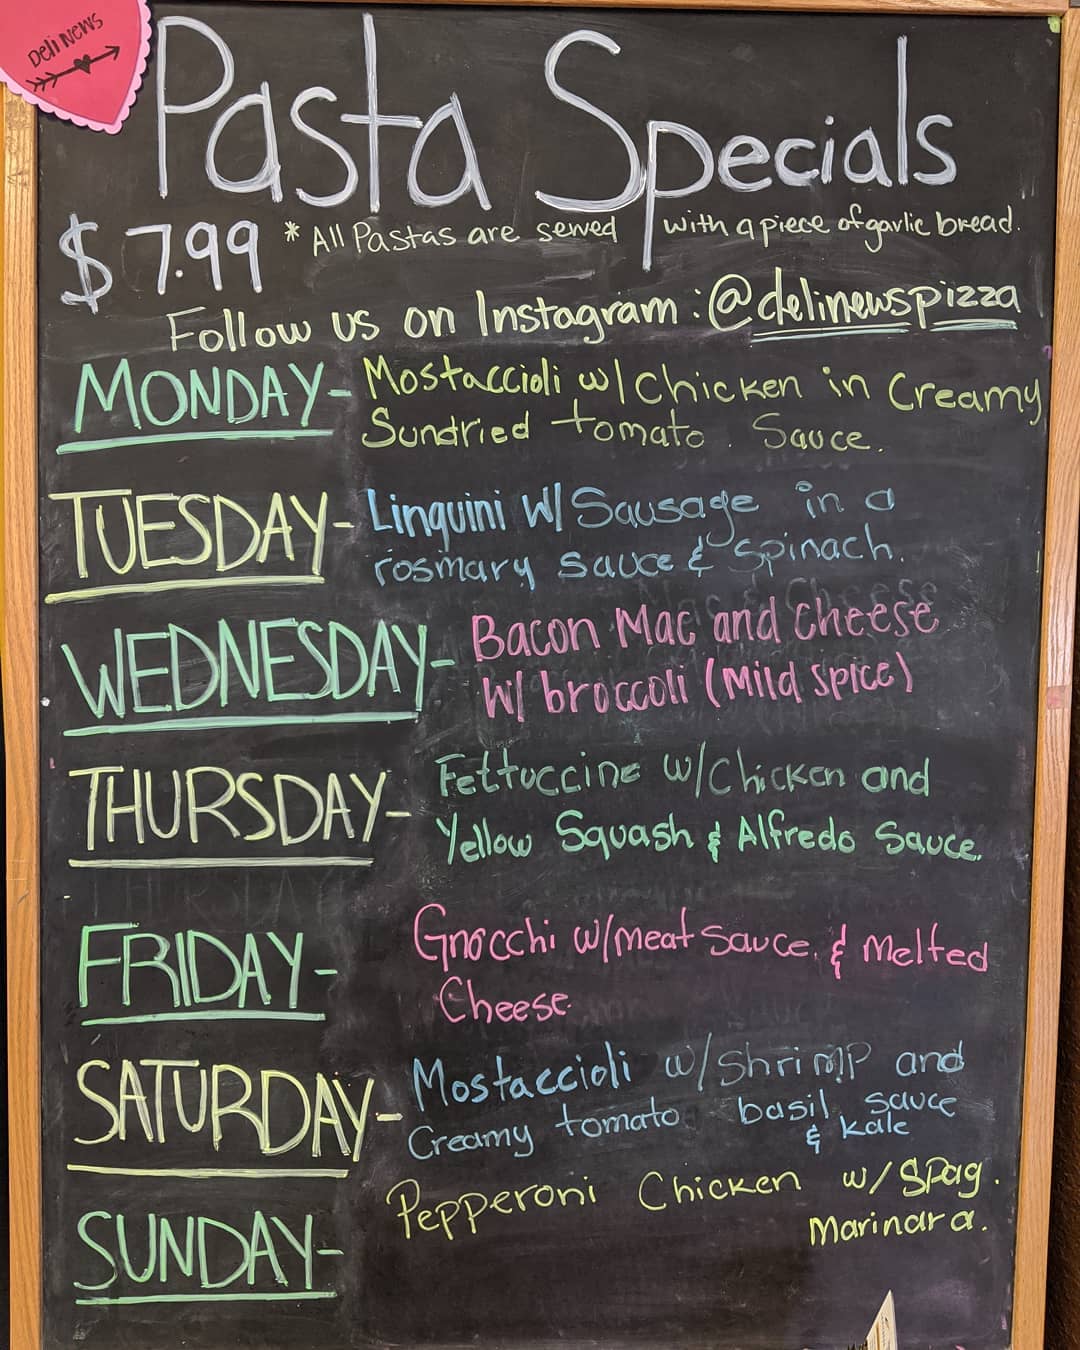 Deli News
Pasta Specials
$7.99 * All Pastas are served with a piece of garlic bread.
Follow us on Instagram: @delinewspizza
MONDAY- Mostaccioli w/ Chicken in Creamy
Sundried tomato. Sauce.
TUESDAY- Linquini W/ Sausage in a
rosmary sauce & Spinach.
WEDNESDAY- Bacon Mac and Cheese
W/ broccoli (Mild spice)
THURSDAY- Fettuccine w/ Chicken and
Yellow Squash & Alfredo Sauce.
FRIDAY- Gnocchi w/ meat sauce. & Melted
Cheese.
SATURDAY- Mostaccioli w/ Shrimp and
Creamy tomato basil sauce
& kale
SUNDAY- Pepperoni Chicken w/ Spag.
Marinara.